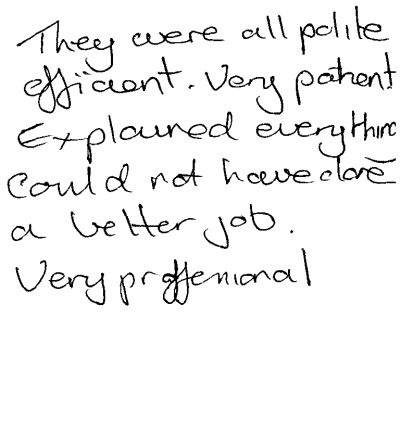 They were all polite
efficient. Very patient
Explained everything
Could not have done
a better job.
Very proffesional